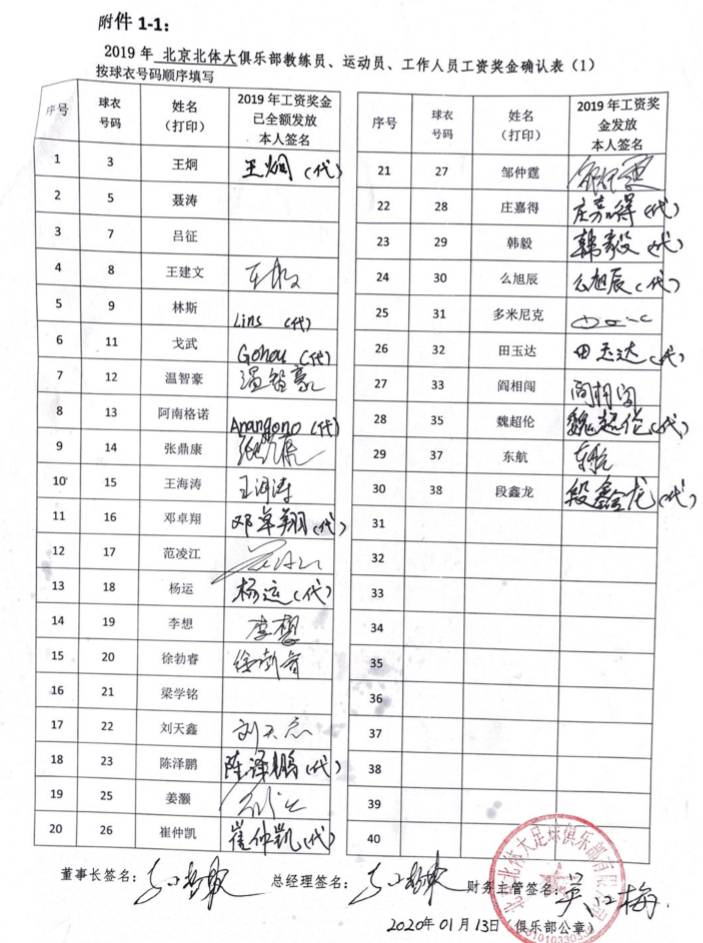 附件 1-1：
2019 年 北京北体大俱乐部教练员、运动员、工作人员工资奖金确认表（1）
按球衣号码顺序填写
序号 球衣号码 姓名（打印） 2019 年工资奖金已全额发放本人签名
1 3 王炯 王炯（代）
2 5 聂涛
3 7 吕征
4 8 王建文
5 9 林斯 Lins （代）
6 11 戈武 Gohou （代）
7 12 温智豪 温智豪
8 13 阿南格诺 Anangono （代）
9 14 张鼎康
10 15 王海涛 王海涛
11 16 邓卓翔 邓卓翔（代）
12 17 范凌江
13 18 杨运 杨运（代）
14 19 李想 李想
15 20 徐勃睿 徐勃睿
16 21 梁学铭
17 22 刘天鑫 刘天鑫
18 23 陈泽鹏 陈泽鹏（代）
19 25 姜灏
20 26 崔仲凯 崔仲凯（代）
序号 球衣号码 姓名（打印） 2019 年工资奖金发放本人签名
21 27 邹仲霆
22 28 庄嘉得 庄嘉得（代）
23 29 韩毅 韩毅（代）
24 30 么旭辰 么旭辰（代）
25 31 多米尼克
26 32 田玉达 田玉达（代）
27 33 阎相闯 阎相闯
28 35 魏超伦 魏超伦（代）
29 37 东航 东航
30 38 段鑫龙 段鑫龙（代）
31
32
33
34
35
36
37
38
39
40
董事长签名： 总经理签名： 财务主管签名：
2020年01月13日（俱乐部公章）